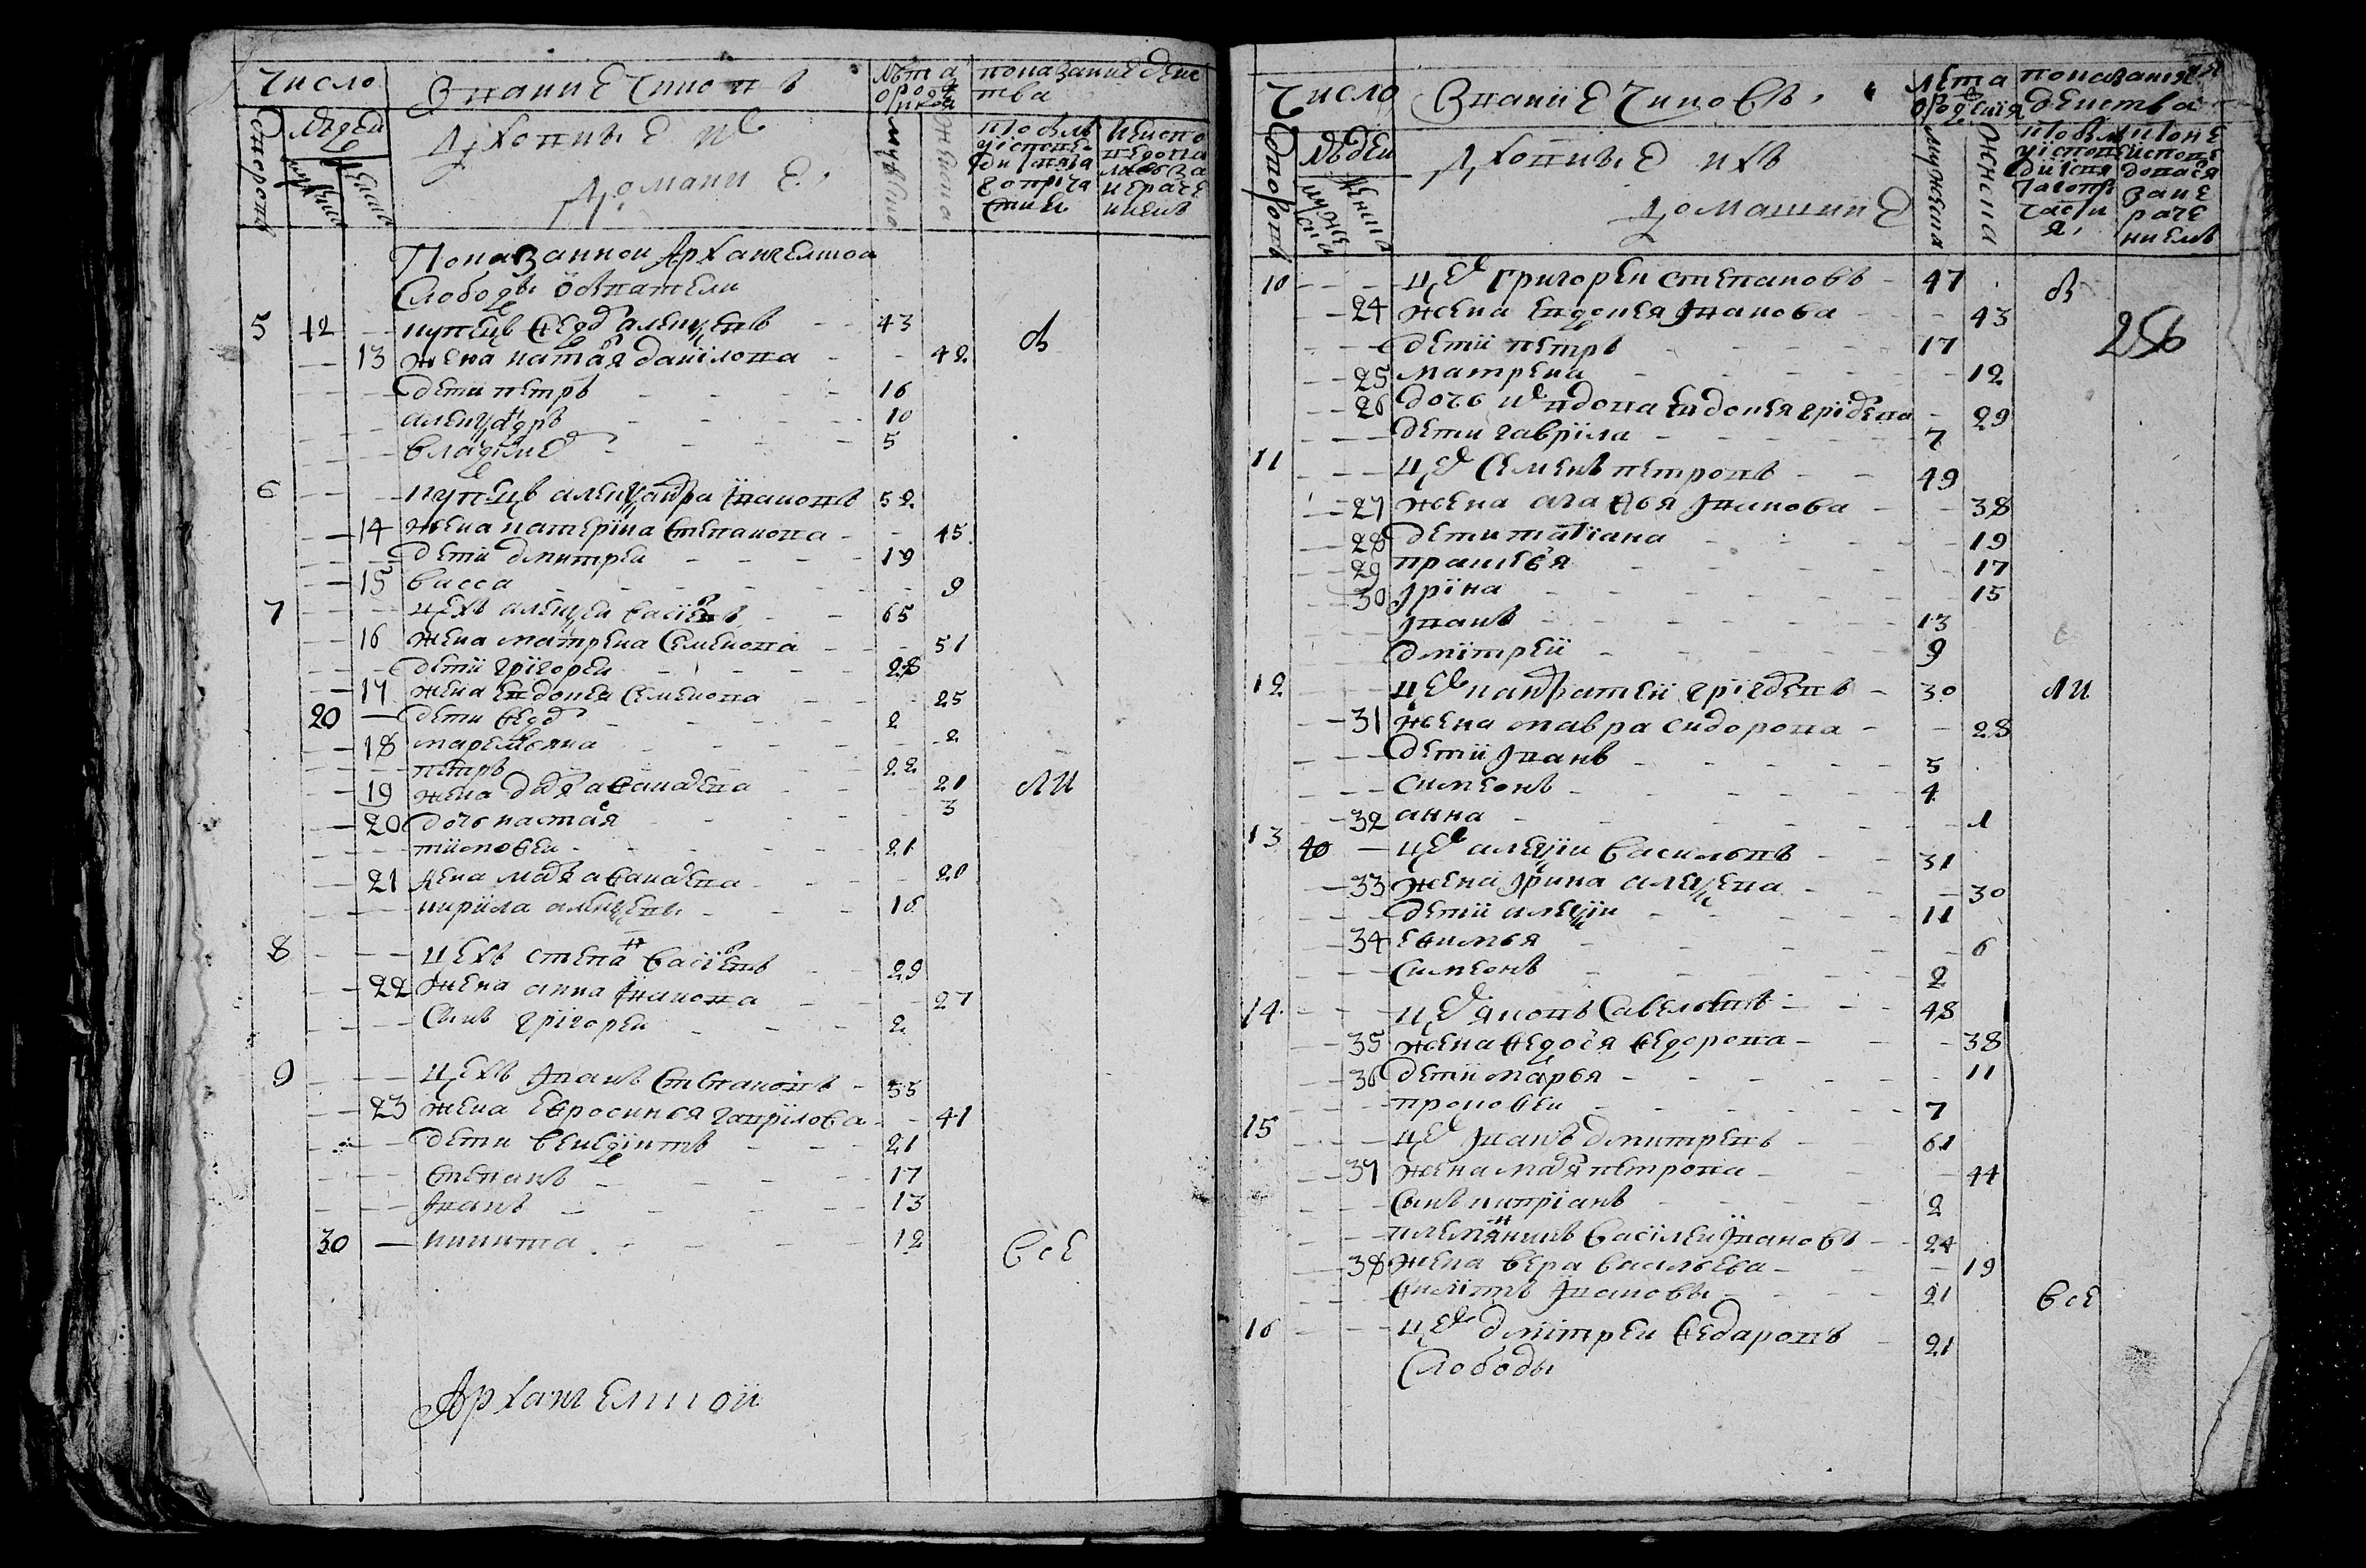 Число
Звание чиновъ
Лѣта о рождении
показание действа
дворовъ
людей
мужска
женска
Духовные и ихъ
домашние
мужеска
женска
кто былъ у исповеди и святаго причастия
Показанной Архангелской
Слободы обыватели
5 12 — купецъ Федоръ Алексеевъ 43 въ
13 жена Наталья Данилова 42
дети Петръ 16
Александръ 10
Владимеръ 5
6 купецъ Александра Ивановъ 52
14 жена Катерина Степанова 45
дети Дмитреи 19
15 Васса 9
7 цехъ Алексеи Васильевъ 65
16 жена Матрена Семенова 51
дети Григореи 28
17 жена Евдокея Семенова 25
20 — дети Федоръ 2
18 Маремьяна 2
Петръ 22
19 жена Дарья Афанасьева 21 ли
20 дочь Настасья 3
Тимофеи 21
21 жена Марья Афанасьева 20
Кирила Алексеевъ 16
8 цехъ Степанъ Васильевъ 29
22 жена Анна Иванова 27
сынъ Григореи 2
9 цехъ Иванъ Степановъ 55
23 жена Ефросинья Гаврилова 41
дети Бенедиктъ 21
Степанъ 17
Иванъ 13
30 — Никита 12 все
Архангелской
Число
Звание чиновъ
Лета о рождения
показания действа
дворовъ
людей
мужска
женска
Духовные ихъ
домашние
мужеска
женска
256
10 цех Григореи Степановъ 47 въ
24 жена Евдокея Иванова 43
дети Петръ 17
25 Матрена 12
26 дочь их вдова Евдокея 29
дети Гаврила 7
11 цех Семенъ Петровъ 49
27 жена Агафья Иванова 38
28 дети Татиана 19
29 Прасковья 17
30 Ирина 15
Иванъ 13
Дмитреи 9
12 цех Панкратеи 30 ли
31 жена Мавра Сидорова 28
дети Иванъ 5
Симеонъ 4
32 Анна 1
13 40 — цех Алексии Васильевъ 31
33 жена Ирина Алексеева 30
дети Алексии 11
34 Ефимья 6
Симеонъ 2
14 цех Яковъ Савельевъ 48
35 жена Федосья Федорова 38
36 дети Марья 11
Прокофеи 7
15 цех Иванъ Дмитревъ 61
37 жена Марья Петрова 44
сынъ Киприанъ 2
племянникъ Василеи Ивановъ 24
38 жена Вера Васильева 19
Ивановы 21 все
16 цех Дмитреи Федаровъ 21
Слободы